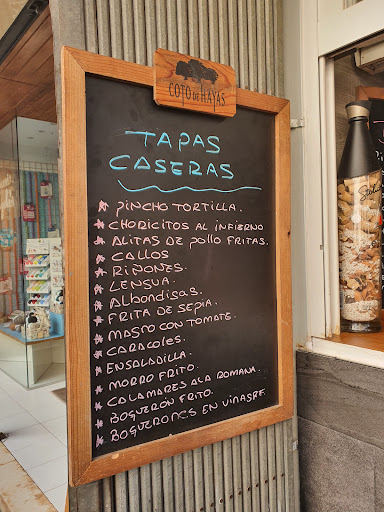 COTO DE HAYAS
TAPAS
CASERAS
* PINCHO TORTILLA.
* CHORICITOS AL INFIERNO
* ALITAS DE POLLO FRITAS.
* CALLOS
* RIÑONES.
* LENGUA.
* AlBONDIGAS.
* FRITA DE SEPIA.
* MAGRO CON TOMATE.
* CARACOLES.
* ENSALADILLA.
* MORRO FRITO.
* CALAMARES A LA ROMANA.
* BOQUERÓN FRITO.
* BOQUERONES EN VINAGRE.